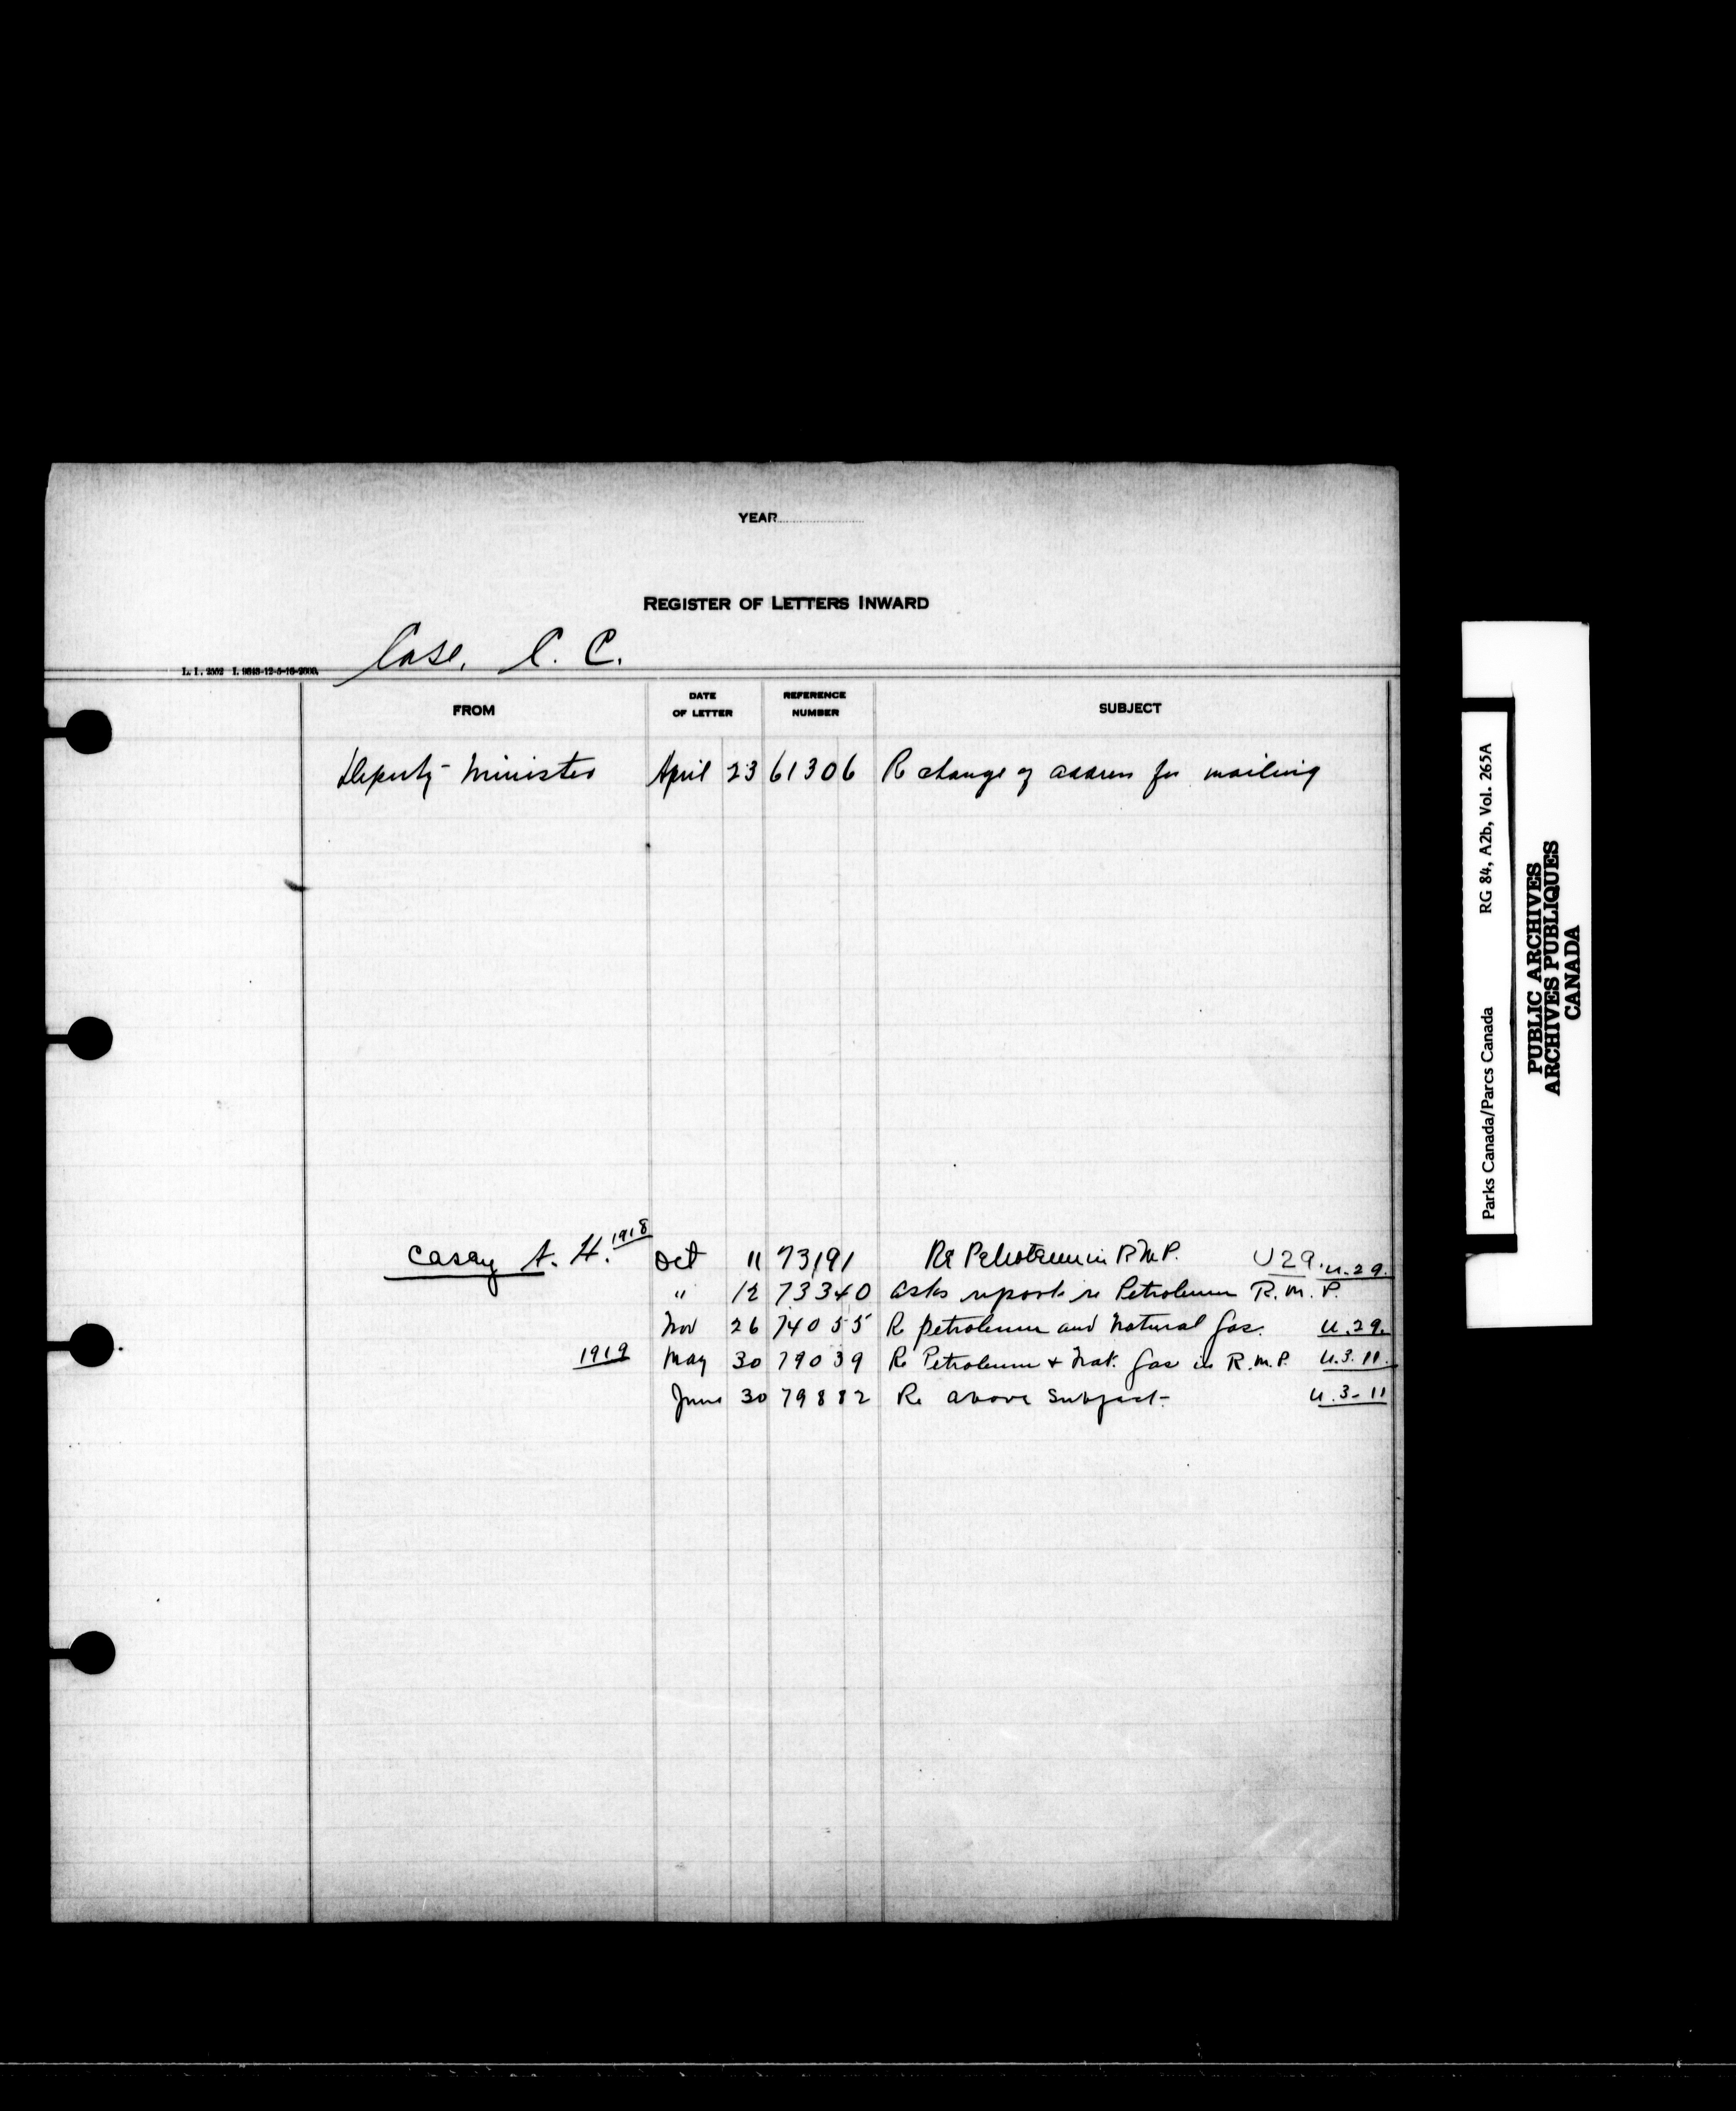 YEAR
REGISTER OF LETTERS INWARD
Case, C. C.
L. I. 2552 I. 9648-12-5-16-2000.
FROM DATE OF LETTER REFERENCE NUMBER SUBJECT
Deputy Minister April 23 61306 Re change of address for mailing
Casey A. H. 1918 Oct 11 73191 Re Petroleum in R.M.P. U29. U.29.
" 12 73340 Asks report re Petroleum R.M.P.
Nov 26 74055 Re petroleum and Natural Gas. U.29.
1919 May 30 79039 Re Petroleum + Nat. Gas in R.M.P. U.3.11.
June 30 79882 Re above subject- U.3-11
Parks Canada/Parcs Canada RG 84, A2b, Vol. 265A
PUBLIC ARCHIVES
ARCHIVES PUBLIQUES
CANADA